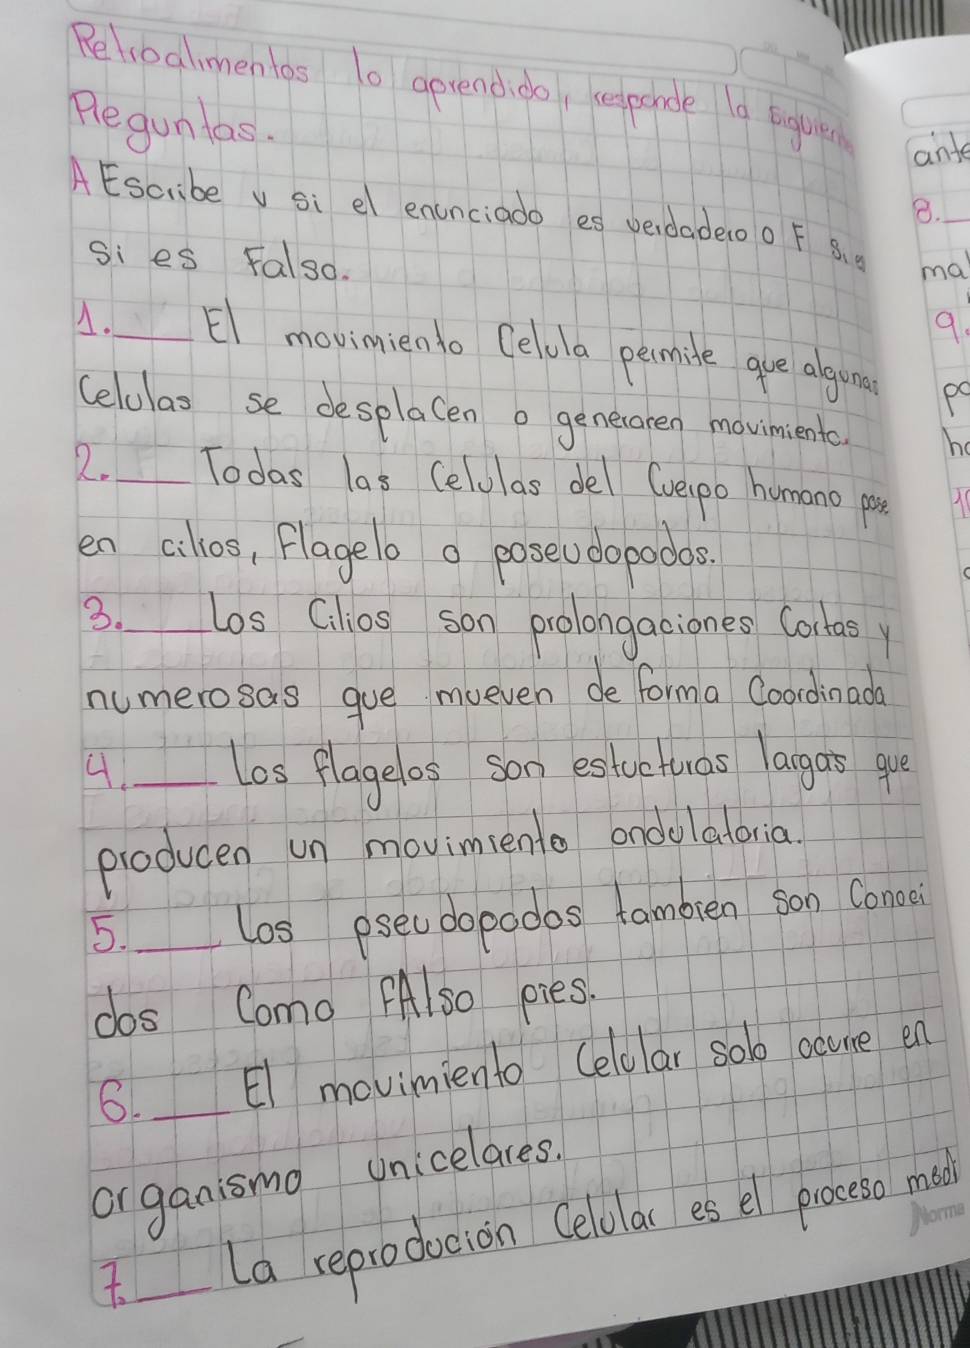 Retroalimentos lo aprendido, responde la siguient
Preguntas.
A Escribe v si el enunciado es verdadero o F si e
si es Falso.
1.___ El movimiento Celula permite que algunas
Celulas se desplacen o generaren movimiento.
2.___ Todas las Celulas del Cuerpo humano pose
en cilios, Flagelo o poseudopodos.
3.___ Los Cilios son prolongaciones Cortas y
numerosas que mueven de forma Coordinada
4.___ Los flagelos son estucturas largas que
producen un movimiento ondulatoria.
5.___ Los pseudopodos tambien son Conoci
dos Como FAlso pies.
6.___ El movimiento Celular solo ocurre en
organismo unicelares.
7.___ La reprodución Celular es el proceso medi
Norma
ante
8.
ma
9.
po
ha
10